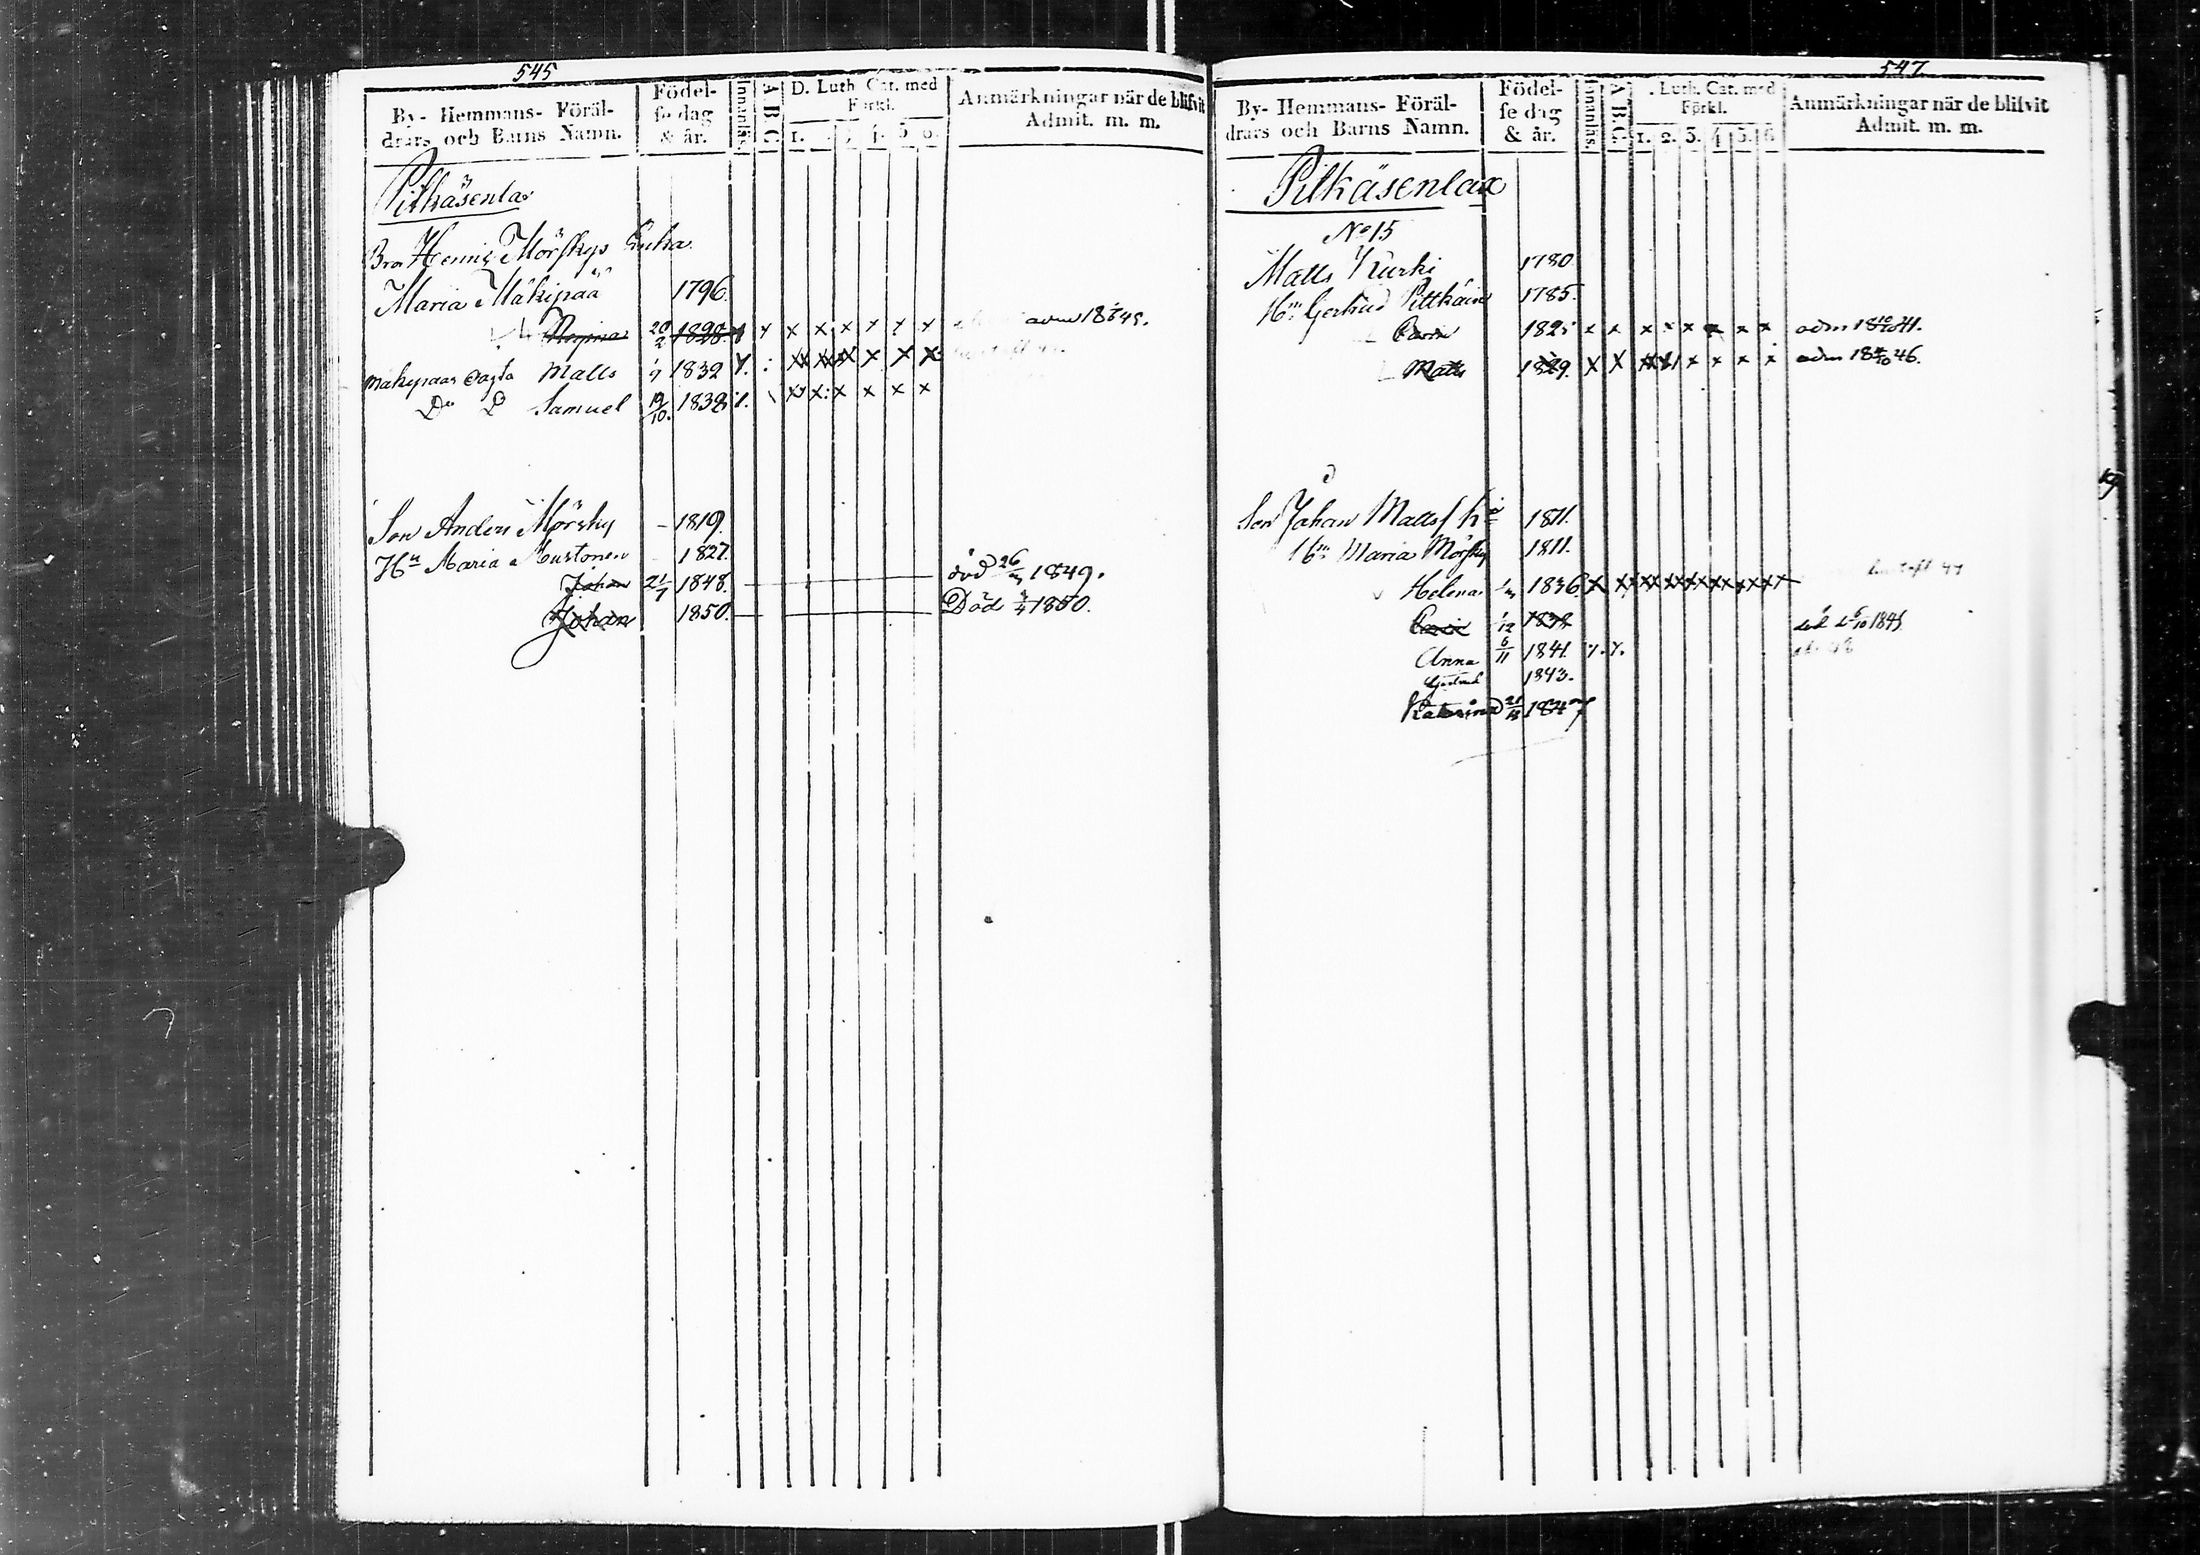 545
By- Hemmans- Föräl-
drars och Barns Namn.
Födel-
se dag
& år.
Innanläs.
A B C.
D. Luth. Cat. med
Förkl.
1. 3. 4. 5. 6.
Anmärkningar när de blifvit
Admit. m. m.
Pitkäsenlax
Bror Henric Mörskys Enka
Maria Mäkipää 1796.
Regina 20/2 1828. x x x x x x x adm 18 45.
Matts 1/7 1832
Do Do Samuel 19/10. 1838
Son Anders Mörsky – 1819.
Hu Maria Mustonen – 1827.
Johan 21/7 1848. död 26/ 1849.
Johan 1850. Död 1850.
547.
By- Hemmans- Föräl-
drars och Barns Namn.
Födel-
se dag
& år.
Innanläs.
A B C.
. Luth. Cat. med
Förkl.
1. 2. 3. 4 5. 6
Anmärkningar när de blifvit
Admit. m. m.
Pitkäsenlax
No 15
Matts Kurki 1780
Hu Gertrud Pittkäin 1785.
Carin 1825 x x x x x x x x adm 18 10/10 41.
Matts 1829. x x x x x x adm 18 46.
Son Johan Matts 1811.
Hu Maria Mörsky 1811.
Helena 1836
Carin 1/12 1838 död 1845
Anna 6/11 1841.
Gertrud 1843.
Katarina 1847